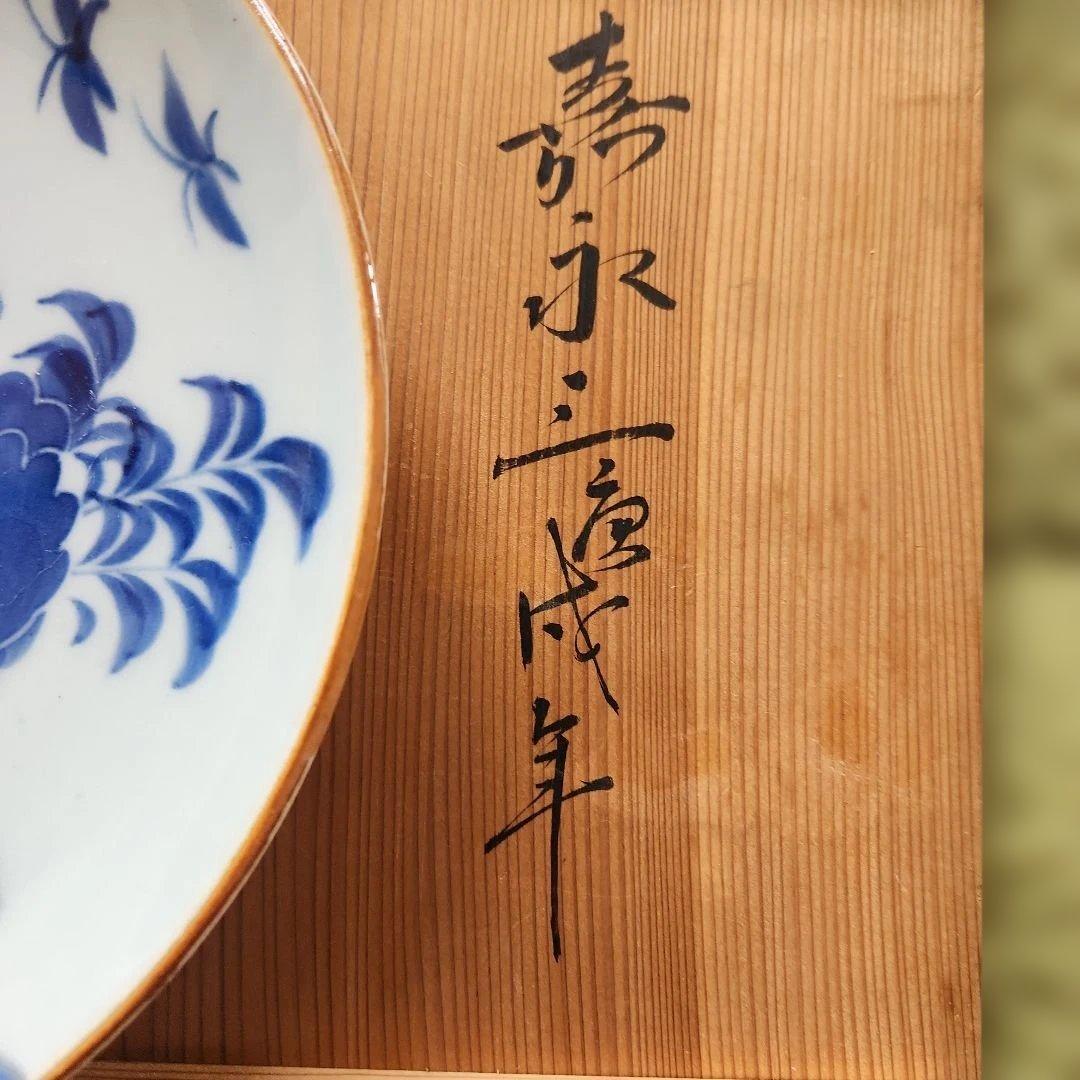 嘉永三庚戌年